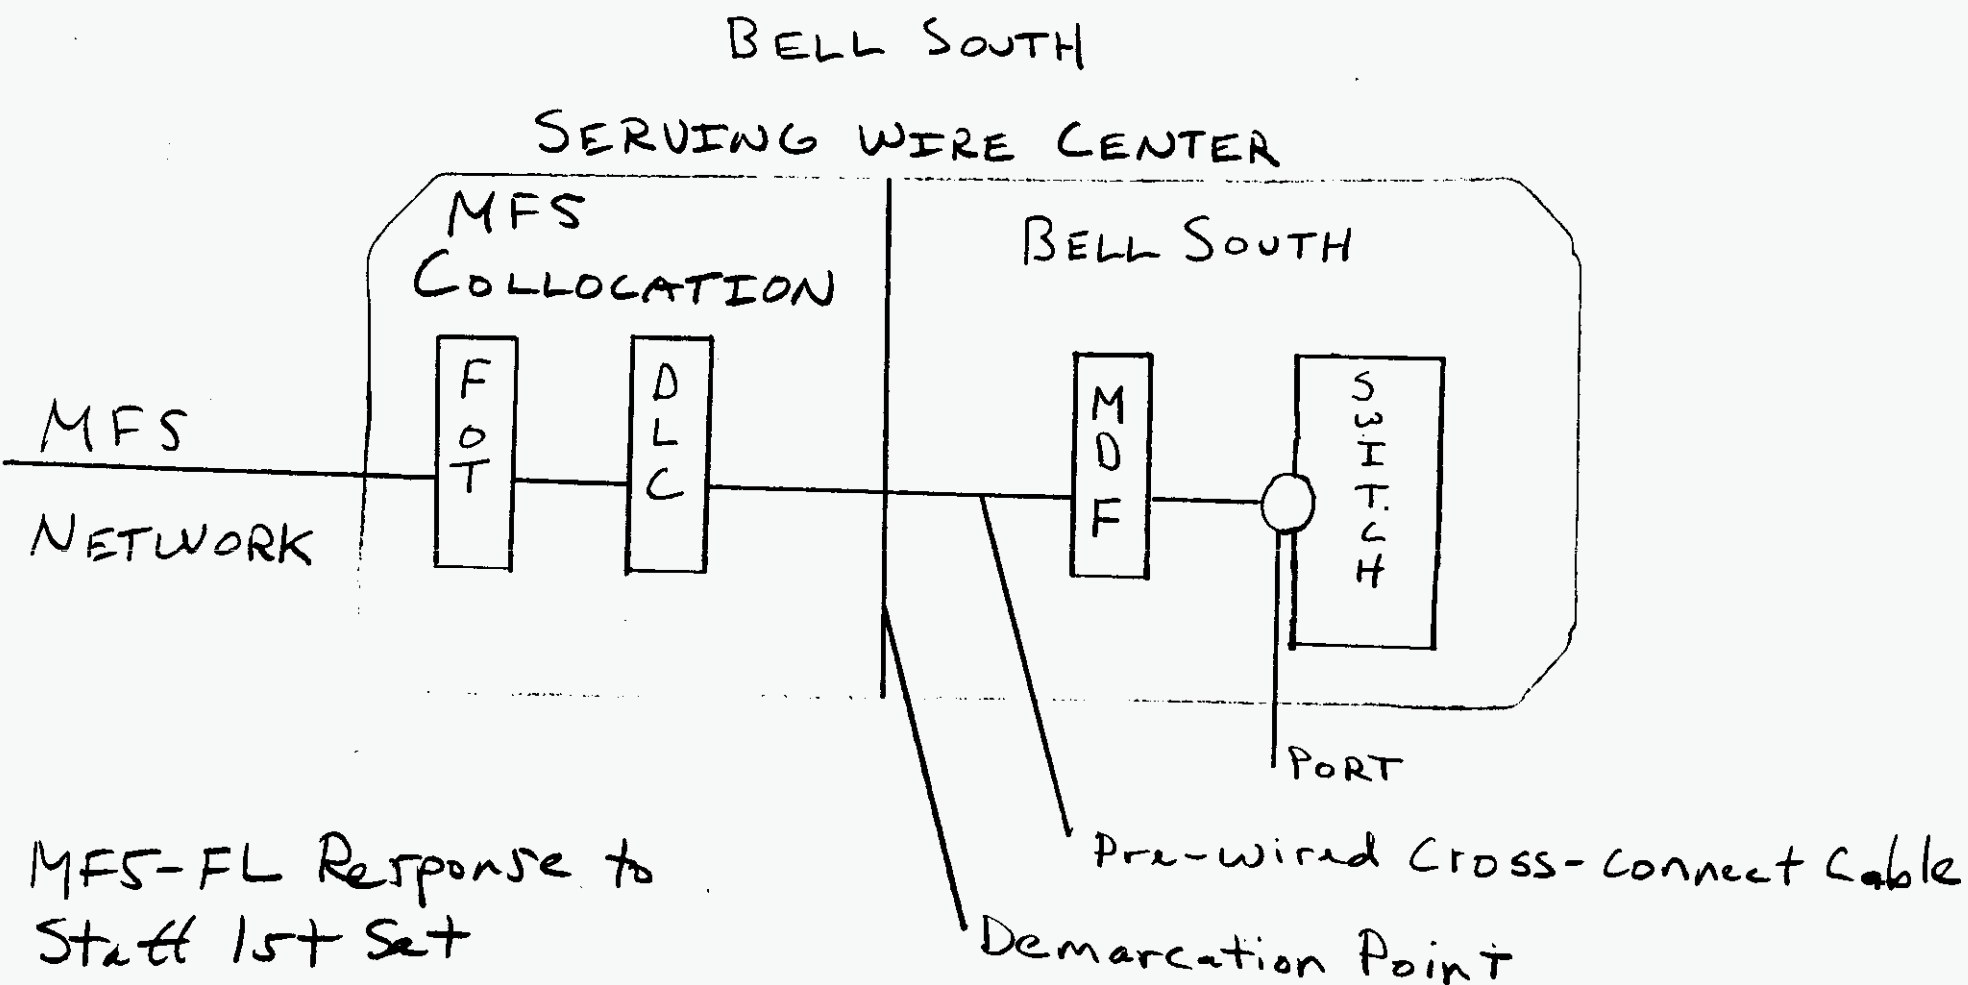 BELL SOUTH
SERVING WIRE CENTER
MFS
COLLOCATION
BELL SOUTH
FOT
DLC
MDF
SWITCH
MFS
NETWORK
PORT
Pre-wired Cross-Connect Cable
Demarcation Point
MFS-FL Response to
Staff 1st Set